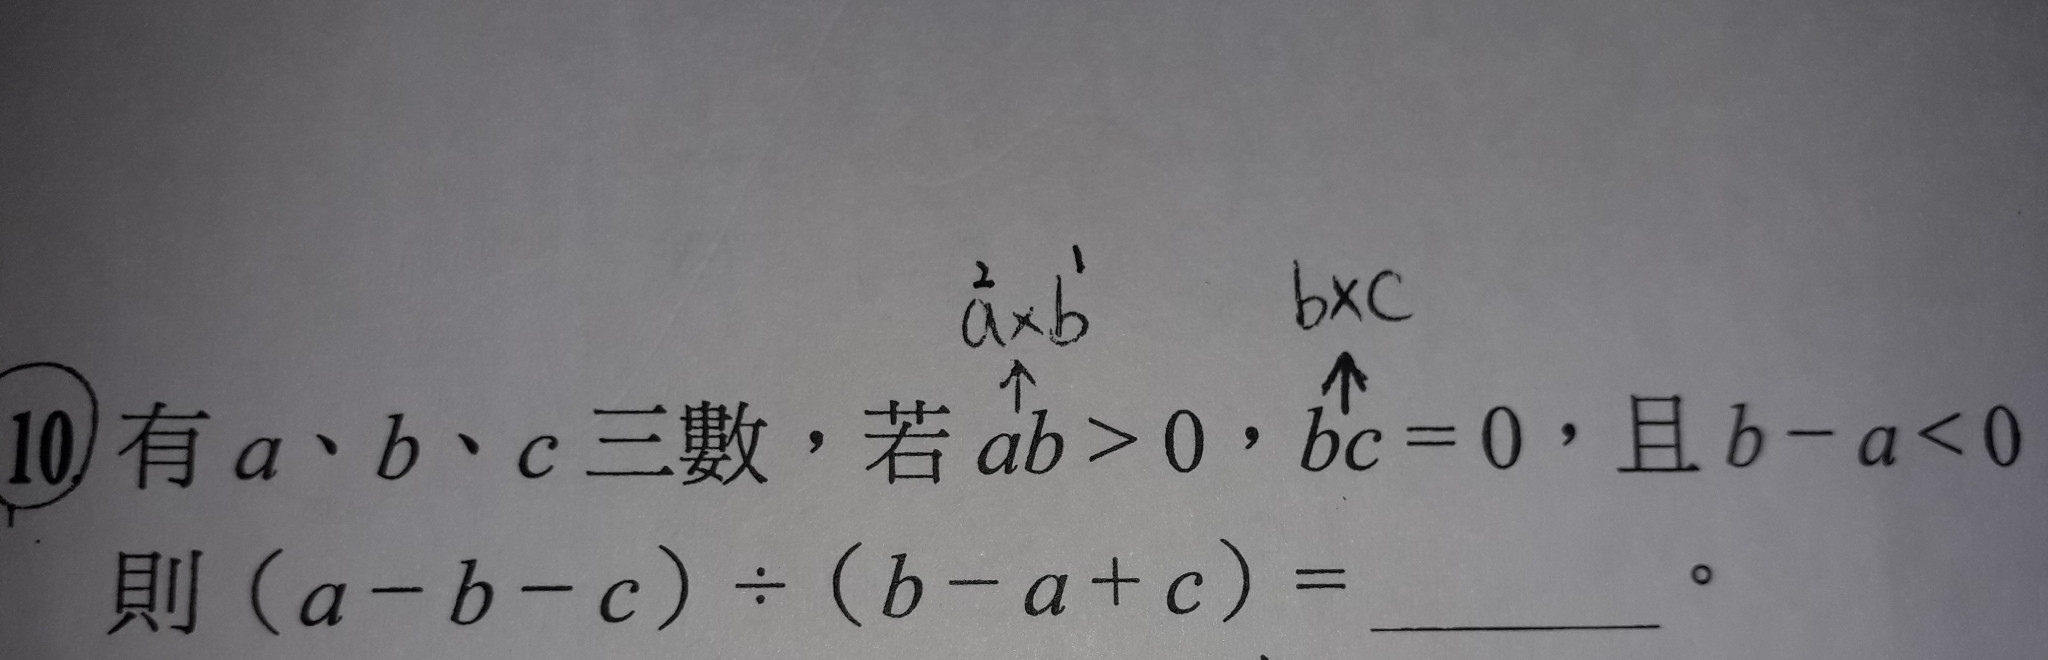 a²×b¹ b×c
↑ ↑
10. 有 a、b、c 三數，若 ab > 0，bc = 0，且 b − a < 0
則（a − b − c）÷（b − a + c）= ______。